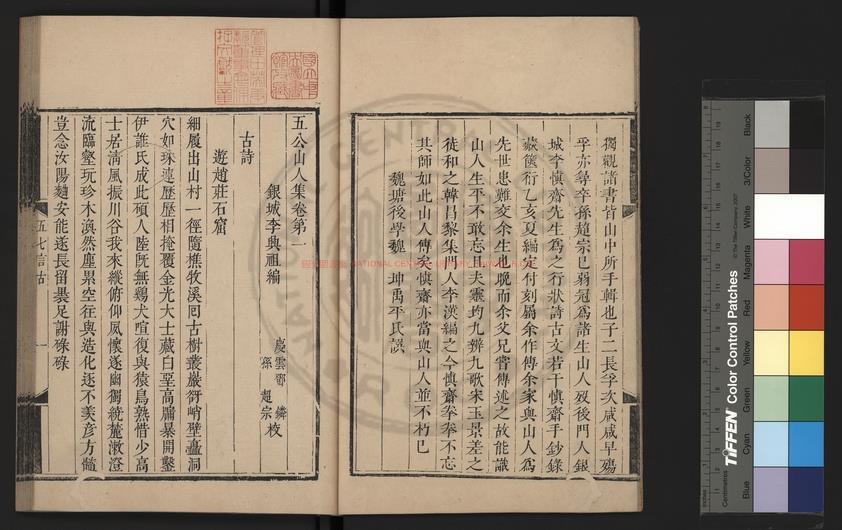 獨觀諸書皆山中所手輯也子二長孚次咸咸早殤
孚亦尋卒孫趙宗巳弱冠爲諸生山人歿後門人銀
城李慎齋先生爲之行狀詩古文若干慎齋手鈔錄
藏篋衍乙亥夏編定付刻屬余作傳余家與山人爲
先世患難交余生也晚而余父兄嘗傳述之故能識
山人生平不敢忘且夫靈均九辨九歌宋玉景差之
徒和之韓昌黎集門人李漢編之今慎齋拳拳不忘
其師如此山人傳矣慎齋亦當與山人並不朽巳
魏塘後學魏坤禹平氏譔
五公山人集卷第一
銀城李興祖編
慶雲鄧鱗
孫超宗
校
古詩
遊趙莊石窟
細履出山村一徑隨樵牧溪囘古樹叢巖谺峭壁矗洞
穴如珠連歷歷相掩覆金光大士藏白堊高牖暴開鑿
伊誰氏成此碩人陸旣無雞犬喧復與猿鳥熟惜少高
士居清風振川谷我來縱俯仰風懷遂幽獨統麓漱澄
流臨壑玩珍木渙然塵累空往與造化逐不羨彦方髓
豈念汝陽麯安能遂長留曇足謝碌碌
五七言古
一
NATIONAL CENTRAL LIBRARY
TIFFEN Color Control Patches
© The Tiffen Company, 2007
Centimetres
Inches
Blue
Cyan
Green
Yellow
Red
Magenta
White
3/Color
Black